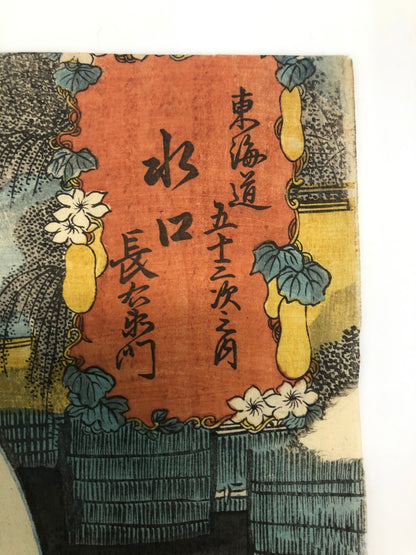 東海道
五十三次之内
水口
長右衛門